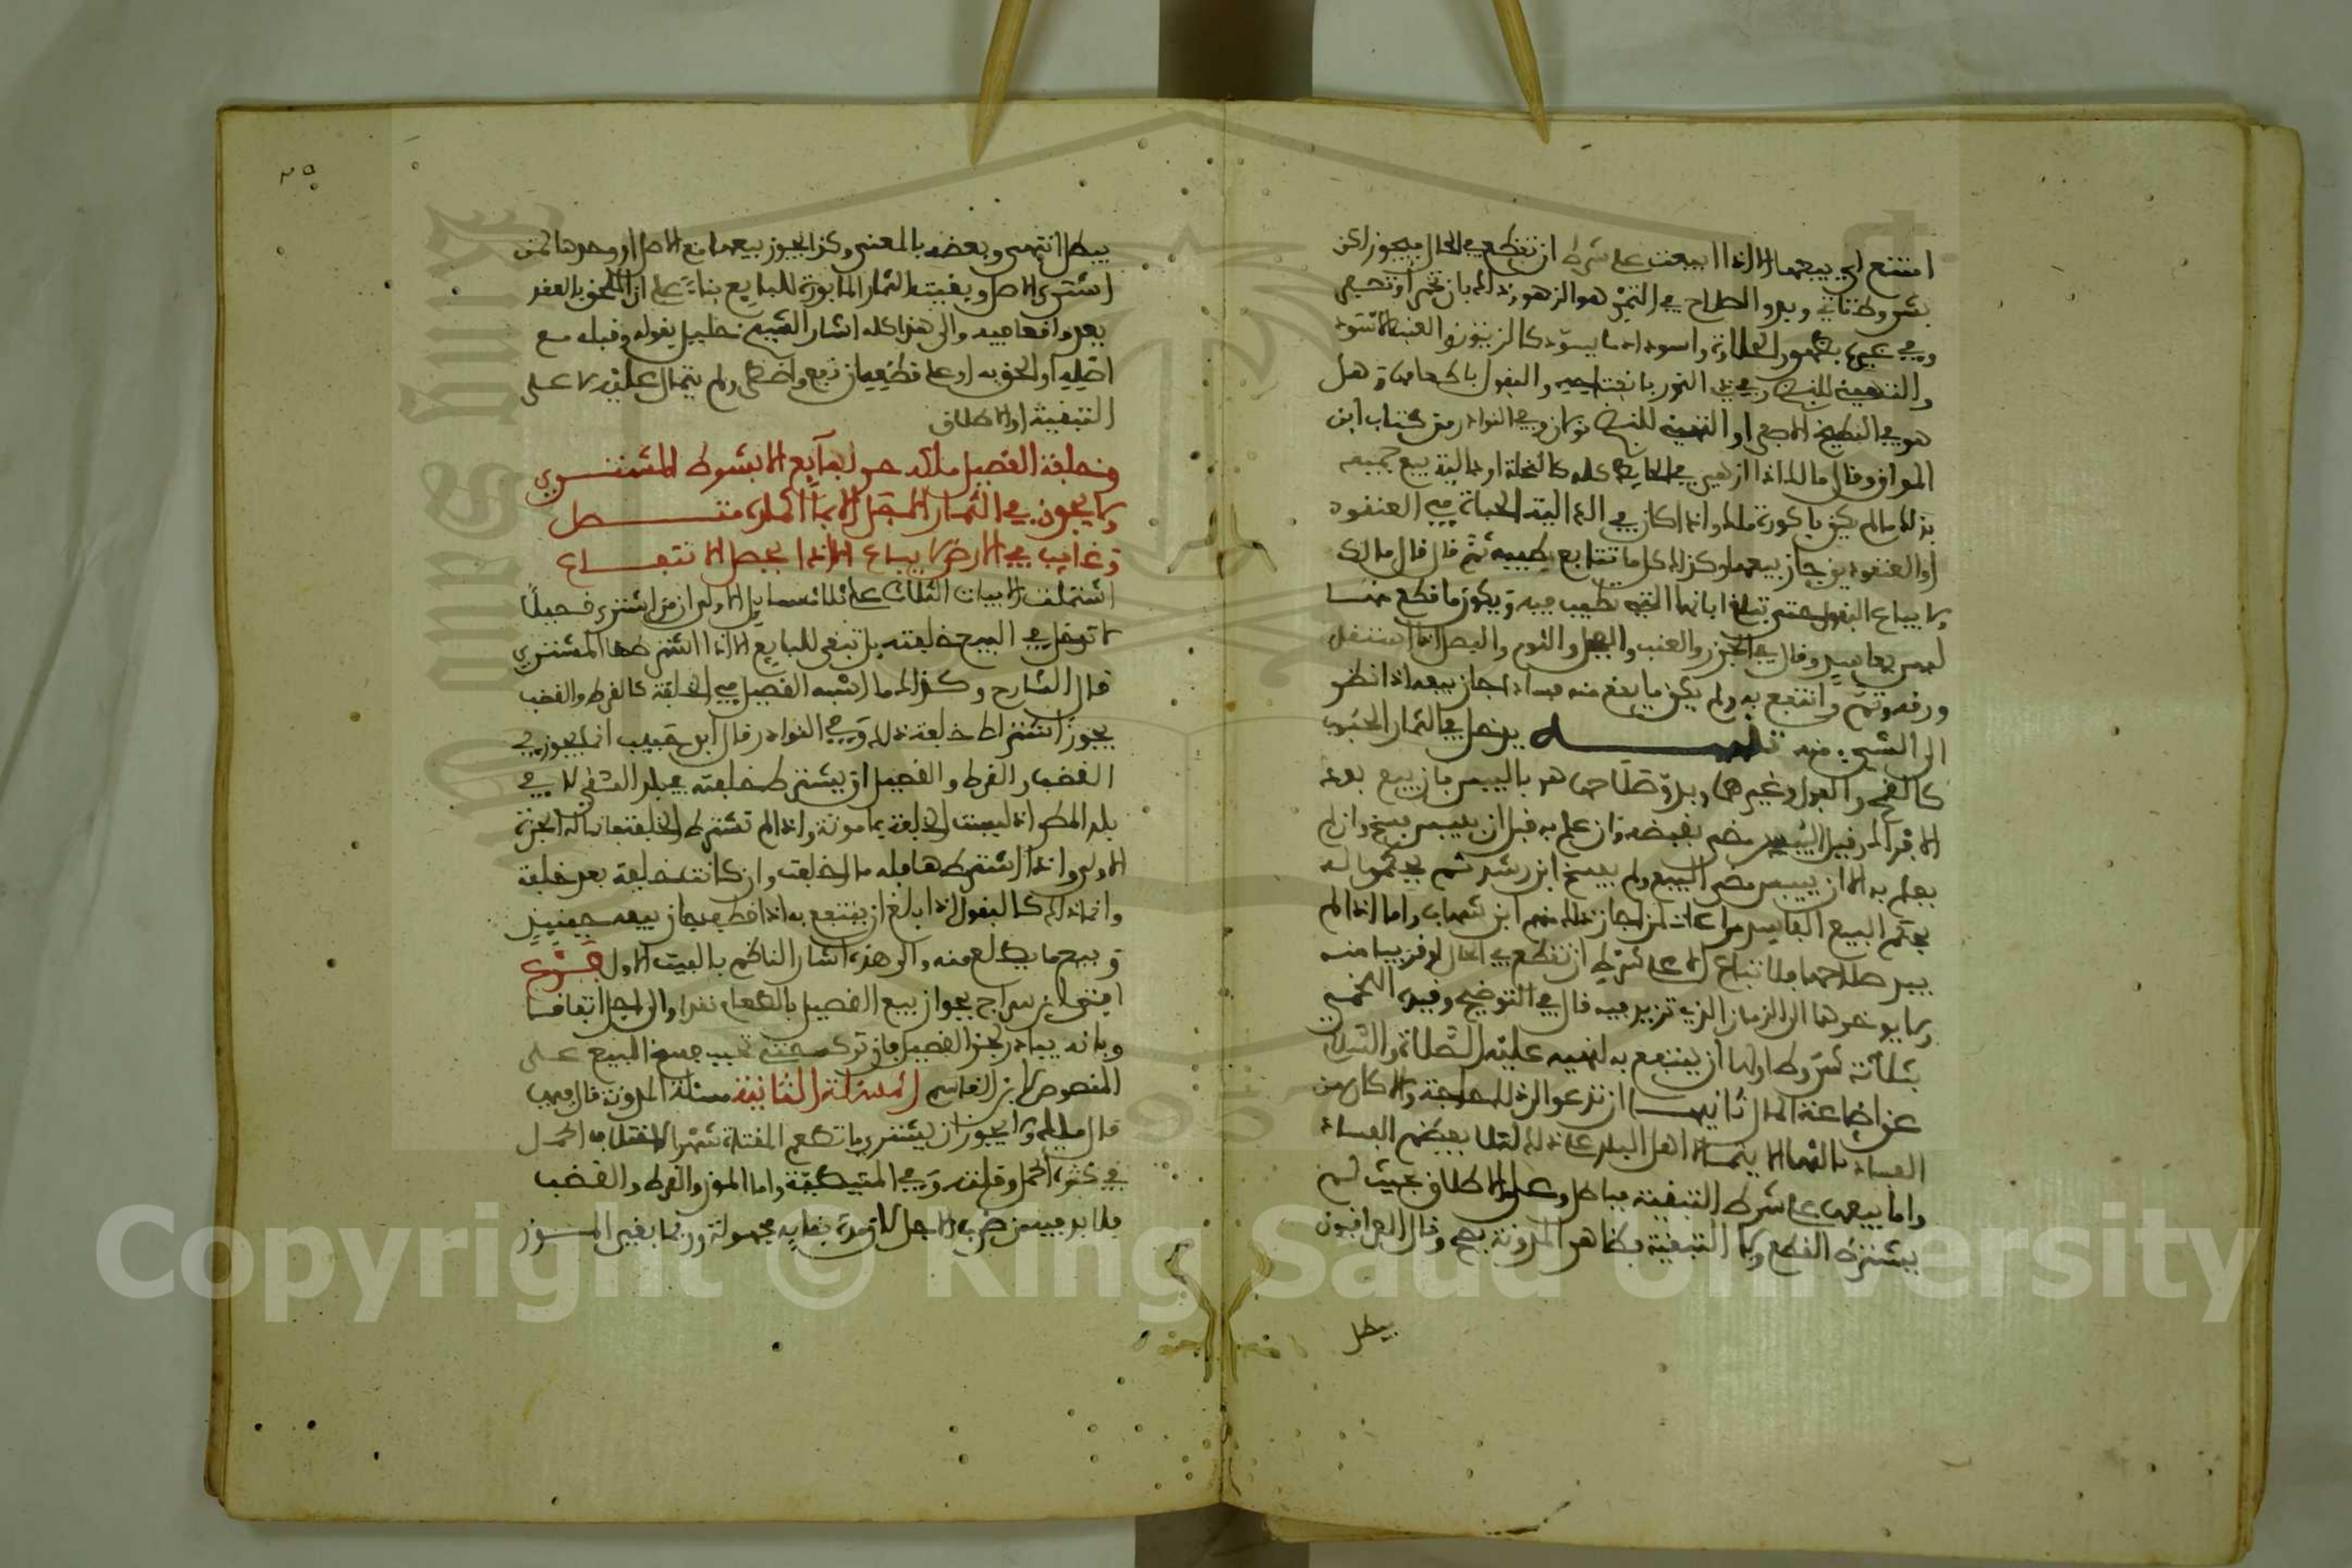 امتنع اي بيعهما الا اذا ابيعت على شرط ان تقطع في الحال فيجوز لكن
بشروط تاتي وبدو الصلاح في التمر هو الزهو وذلك بان تحمر او تصفر
وفي غيره بظهور الحلاوة واسوداد ما يسود كالزيتون والعنب الاسود
والتهيئة للنضج وفي ذي النور بانفتاحه والبقول باطعامها وهل
هو في البطيخ الاصفرار او التهيئة للنضج قولان وفي النوادر من كتاب ابن
المواز وقال مالك اذا ازهى في الحايط كله كالنخلة او دالية بيع جميعه
بذلك ما لم يكن باكورة واذا كان في الدالية الحبات في العنقود
او العنقودين جاز بيعها وكذلك كل ما تتابع طيبه ثم قال قال مالك
ولا يباع البقول حتى تبلغ ابانها الذي تطيب فيه ويكون ما قطع منها
ليس بفاسد وقال في الجزر والعنب والفجل والثوم والبصل اذا استقل
ورقه وتم وانتفع به ولم يكن ما يقلع منه فساد جاز بيعه اذا نظر
الى الشيء منه تنبيه يدخل في الثمار الحبوب
كالقمح والفول وغيرها وبدو صلاحها هو باليبس فان بيع بعد
الافراك وقبل اليبس مضى بقبضه وان علم به قبل ان ييبس فسخ وان لم
يعلم به الا ان ييبس مضى البيع ولم يفسخ ابن رشد ثم يحكم له
بحكم البيع الفاسد مراعات لمن اجاز ذلك منهم ابن شهاب واما اذا لم
يبد صلاحها فلا تباع الا على شرط ان تقطع في الحال او قريبا منه
ولا يوخرها الى الزمان الذي تزيد فيه قال في التوضيح وقيده اللخمي
بثلاثة شروط اولها ان ينتفع به لنهيه عليه الصلاة والسلام
عن اضاعة المال ثانيها ان تدعو الى ذلك حاجة والا كان من
الفساد ثالثها الا يتمالا اهل البلد على ذلك لئلا يعظم الفساد
واما بيعها على شرط التبقية فباطل وعلى الاطلاق بحيث لم
يشترط القطع ولا التبقية فظاهر المدونة يصح وقال العراقيون
يبطل
٣٥
يبطل انتهى وبعضه بالمعنى وكذا يجوز بيعها مع الاصل او وحدها لمن
اشترى الاصل وبقيت الثمار المابورة للبايع بناء على ان الملحق بالعقد
يعد واقعا فيه والى هذا كله اشار الشيخ خليل بقوله وقبله مع
اصليه او الحق به او على قطعه ان نفع واضطر ولم يتمالا عليه لا على
التبقية او الاطلاق
وخلفة القصيل ملكه حري لبايع الا بشرط المشتري
ولا يجوز في الثمار الاجل الا بما اثماره متصل
وغايب في الارض لا يباع الا اذا يحصل الانتفاع
اشتملت الابيات الثلاث على ثلاث مسايل الاولى ان من اشترى قصيلا
لا تدخل في البيع خلفته بل تبقى للبايع الا اذا اشترطها المشتري
قال الشارح وكذلك ما اشبه القصيل في الخلفة كالقرط والقضب
يجوز اشتراط خلفة ذلك وفي النوادر قال ابن حبيب انما يجوز في
القضب والقرط والقصيل ان يشترط خلفته في بلد السقي لا في
بلد المطر اذ ليست الخلفة بمامونة واذا لم تشترط الخلفة فانما له الجزة
الاولى واذا اشترطها فله ما اخلفت وان كانت خلفة بعد خلفة
وانما ذلك كالبقول اذا بلغ ان ينتفع به اذا قطع فجاز بيعه حينئذ
وبيع ما يطلع منه والى هذا اشار الناظم بالبيت الاول فرع
افتى ابن سراج بجواز بيع القصيل بالطعام نقدا والى اجل اتفاقا
وبانه يبادر لجز القصيل فان تركه حتى تحبب فسخ البيع على
المنصوص لابن القاسم المسئلة الثانية مسئلة المدونة قال فيها
قال مالك ولا يجوز ان يشترى ما تطعم المقثاة شهرا لاختلاف الحمل
في كثرة الحمل وقلته وفي المتيطية واما الموز والقرط والقضب
فلا بد فيه من ضرب الاجل لان مدة بقايه مجهولة وربما بقي الموز